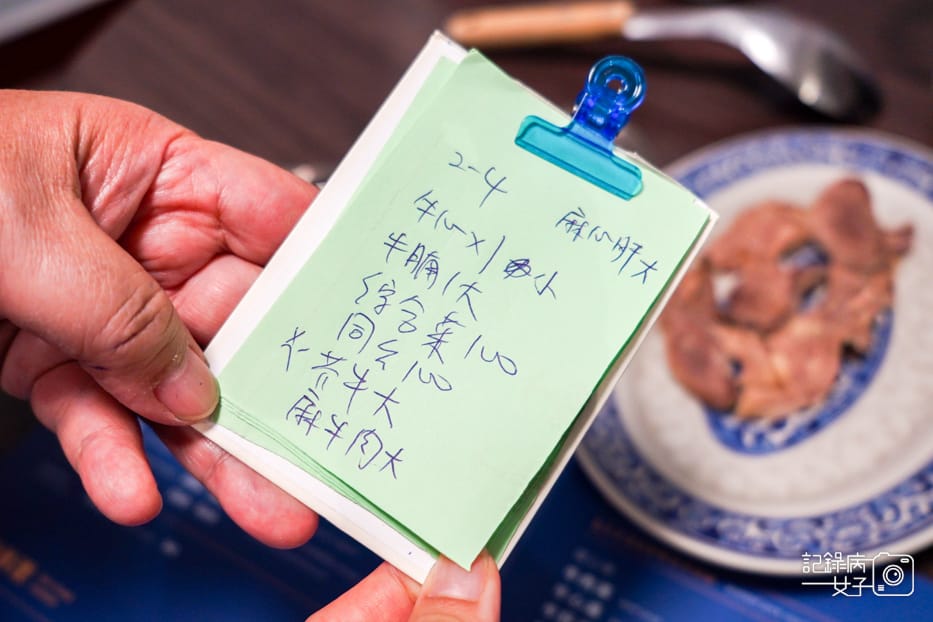 2-4
麻心肝大
牛心x1 小
牛腩1大
綜合菜100
同台100
芥牛大
麻牛肉大
記錄病
女子